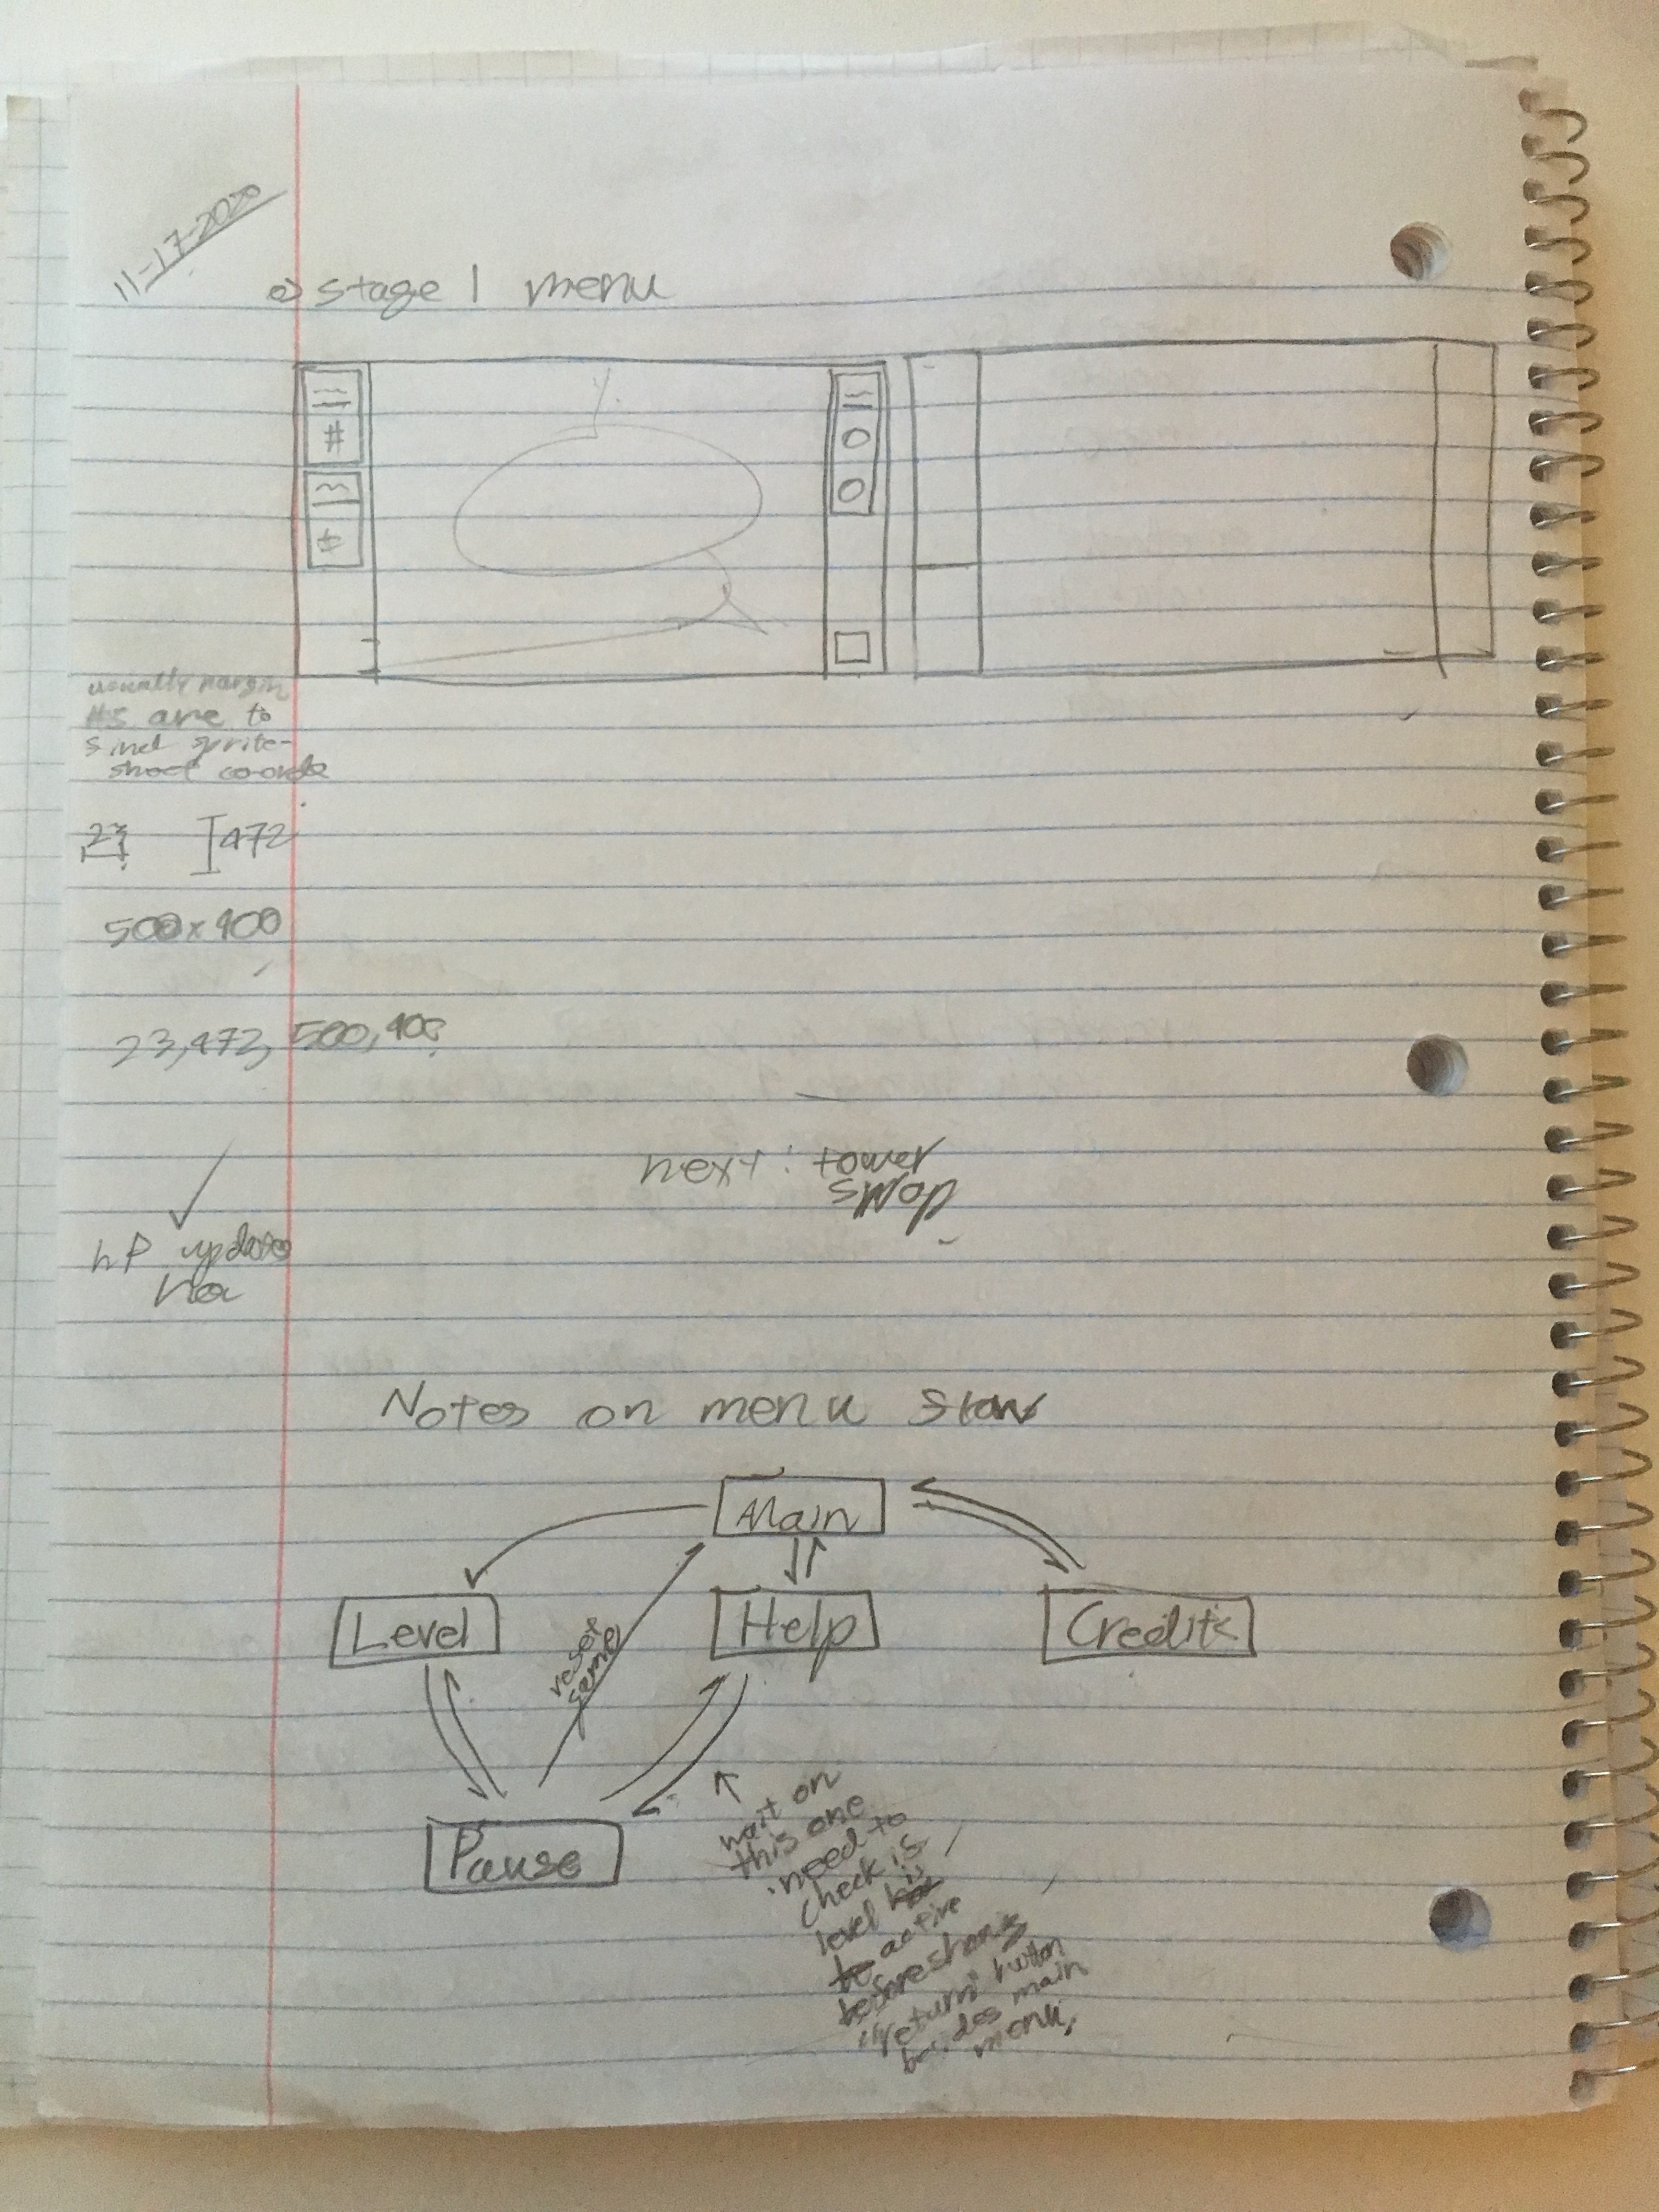 11-17-2020
stage 1 menu
#
usually margin
#s are to
find sprite-
sheet coords
23 472
500x400
23,472, 500, 400
next: tower
swap
hp update
Notes on menu
Main
Level
Help
Credits
reset
game
Pause
wait on
this one
need to
check is
level is
active
before showing
"return" button
besides main
menu.